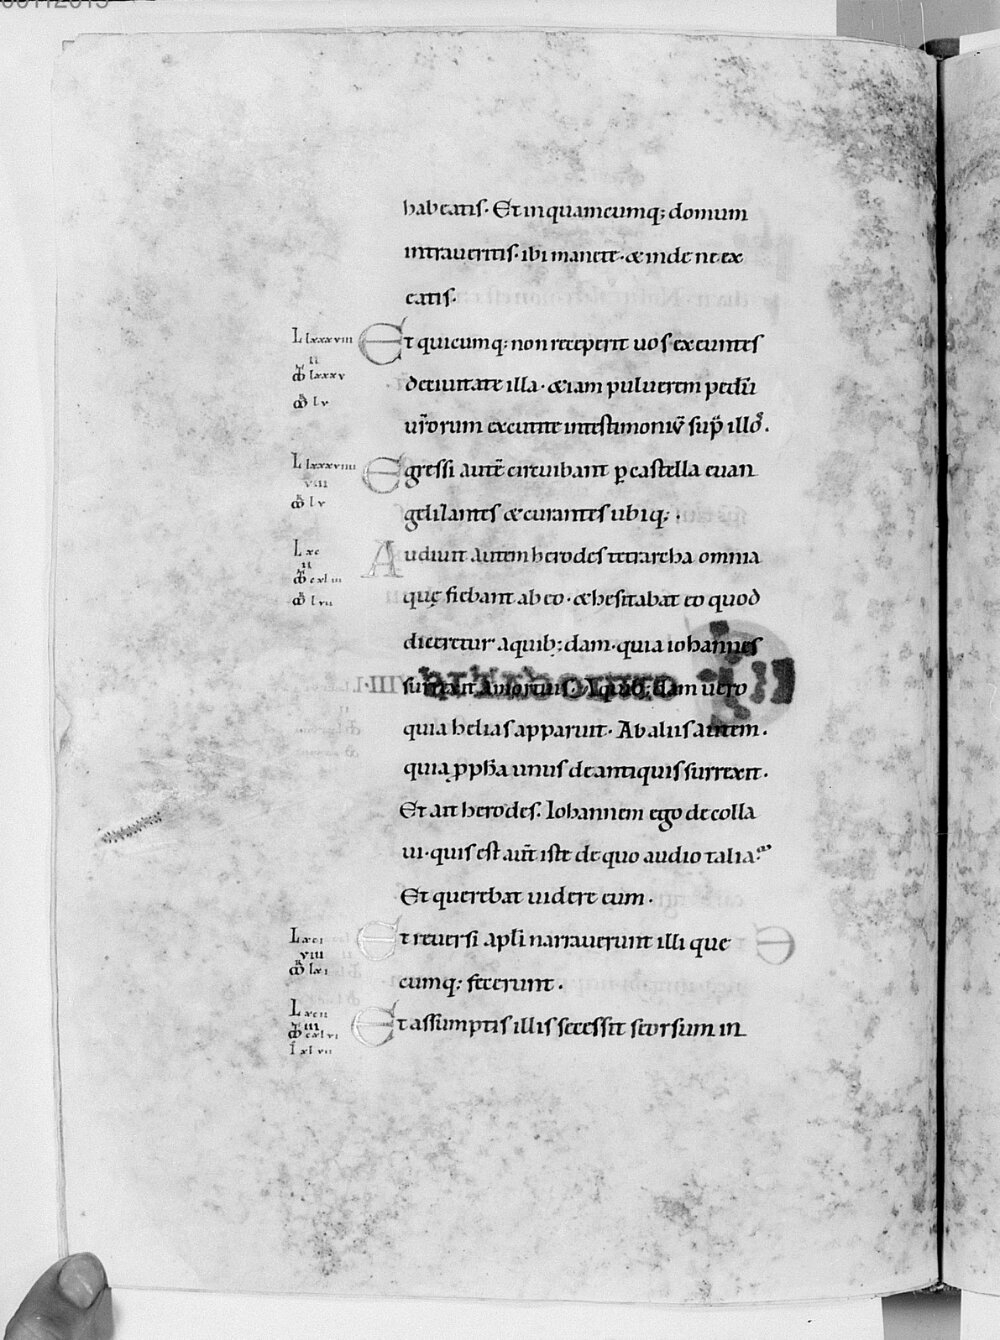 habeatis. Et in quamcumq; domum
intraueritis. ibi manete. & inde ne ex
eatis.
L lxxxviii Et quicumq; non receperit uos exeuntes
ii
lxxxv deciuitate illa. & iam puluerem pedū
lv ur̄orum excutite intestimoniū sup̄ illos.
L lxxxviiii Egressi autē circuibant p castella euan
viii
lv gelizantes & curantes ubiq;
L xc Audiuit autem herodes tetrarcha omnia
ii
cxliii
lvii quę fiebant ab eo. & hesitabat eo quod
diceretur aquib; dam. quia iohannes
surrexit amortuis. Aquib; dam uero
quia helias apparuit. Ab aliis autem.
quia ppħa unus de antiquis surrexit.
Et ait herodes. Iohannem ego decolla
ui. quis est aut̄ iste de quo audio talia?
Et querebat uidere eum.
L xci Et reuersi apl̄i narrauerunt illi que
viii
lxi cumq; fecerunt.
L xcii Et assumptis illis secessit seorsum in
iii
cxlvi
I xlvii